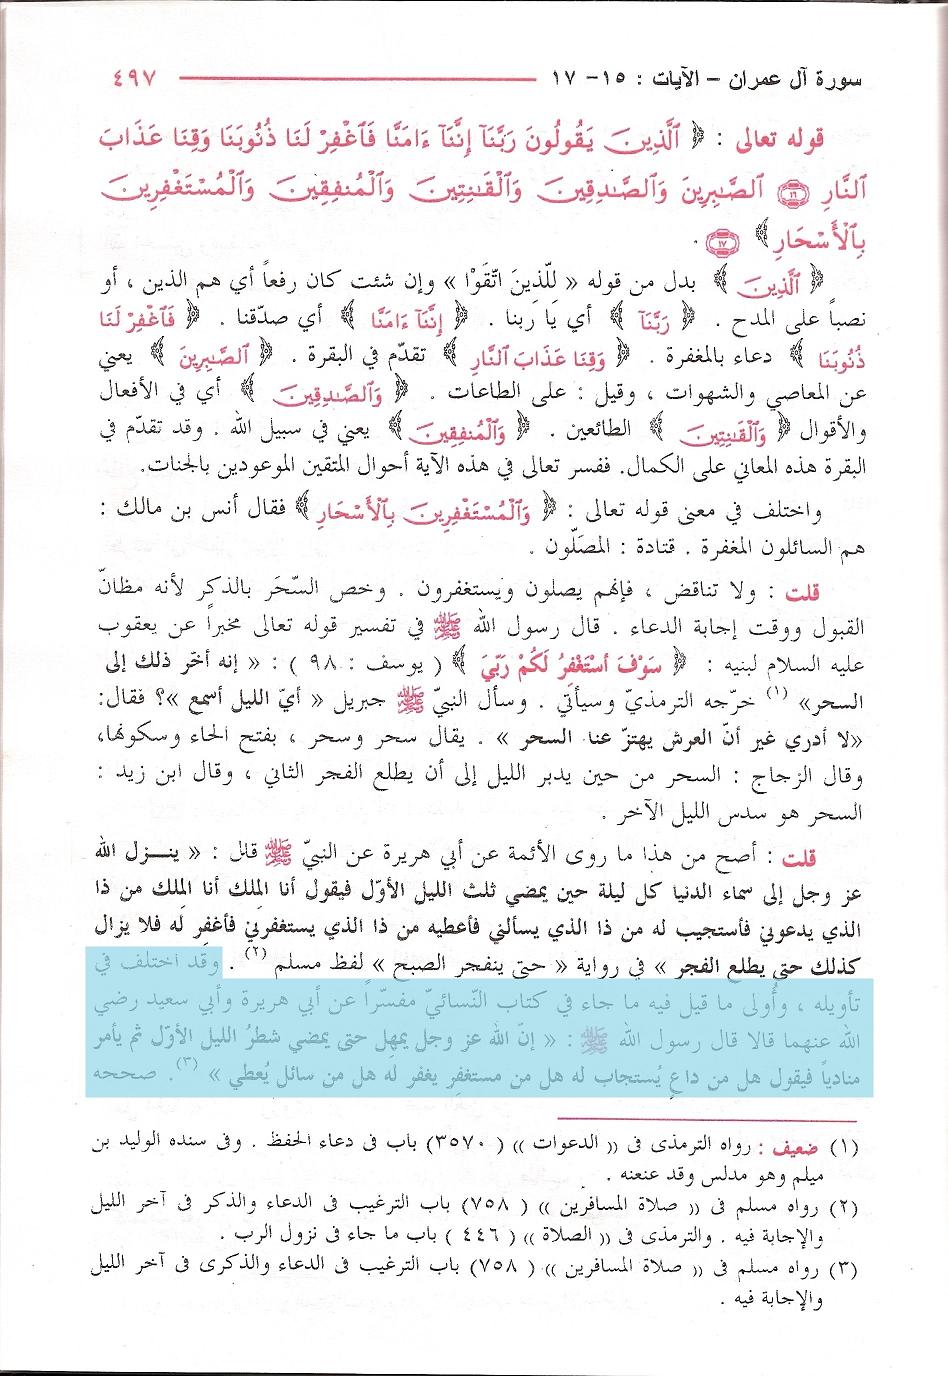 سورة آل عمران – الآيات : ١٥ – ١٧ ٤٩٧
قوله تعالى : ﴿ ٱلَّذِينَ يَقُولُونَ رَبَّنَآ إِنَّنَآ ءَامَنَّا فَٱغْفِرْ لَنَا ذُنُوبَنَا وَقِنَا عَذَابَ
ٱلنَّارِ ١٦ ٱلصَّـٰبِرِينَ وَٱلصَّـٰدِقِينَ وَٱلْقَـٰنِتِينَ وَٱلْمُنفِقِينَ وَٱلْمُسْتَغْفِرِينَ
بِٱلْأَسْحَارِ ﴾ ١٧ .
﴿ ٱلَّذِينَ ﴾ بدل من قوله « لِلَّذِينَ اتَّقَوْا » وإن شئت كان رفعاً أي هم الذين ، أو
نصباً على المدح . ﴿ رَبَّنَآ ﴾ أي يا ربنا . ﴿ إِنَّنَآ ءَامَنَّا ﴾ أي صدّقنا . ﴿ فَٱغْفِرْ لَنَا
ذُنُوبَنَا ﴾ دعاء بالمغفرة . ﴿ وَقِنَا عَذَابَ ٱلنَّارِ ﴾ تقدّم في البقرة . ﴿ ٱلصَّـٰبِرِينَ ﴾ يعني
عن المعاصي والشهوات ، وقيل : على الطاعات . ﴿ وَٱلصَّـٰدِقِينَ ﴾ أي في الأفعال
والأقوال ﴿ وَٱلْقَـٰنِتِينَ ﴾ الطائعين . ﴿ وَٱلْمُنفِقِينَ ﴾ يعني في سبيل الله . وقد تقدّم في
البقرة هذه المعاني على الكمال. ففسر تعالى في هذه الآية أحوال المتقين الموعودين بالجنات.
واختلف في معنى قوله تعالى : ﴿ وَٱلْمُسْتَغْفِرِينَ بِٱلْأَسْحَارِ ﴾ فقال أنس بن مالك :
هم السائلون المغفرة . قتادة : المصَلّون .
قلت : ولا تناقض ، فإنهم يصلون ويستغفرون . وخص السّحَر بالذكر لأنه مظانّ
القبول ووقت إجابة الدعاء . قال رسول الله ﷺ في تفسير قوله تعالى مخبراً عن يعقوب
عليه السلام لبنيه : ﴿ سَوْفَ أَسْتَغْفِرُ لَكُمْ رَبِّيَ ﴾ ( يوسف : ٩٨ ) : « إنه أخّر ذلك إلى
السحر» (١) خرّجه الترمذيّ وسيأتي . وسأل النبيّ ﷺ جبريل « أيّ الليل أسمع »؟ فقال:
«لا أدري غير أنّ العرش يهتزّ عنا السحر » . يقال سحر وسحر ، بفتح الحاء وسكونها،
وقال الزجاج : السحر من حين يدبر الليل إلى أن يطلع الفجر الثاني ، وقال ابن زيد :
السحر هو سدس الليل الآخر .
قلت : أصح من هذا ما روى الأئمة عن أبي هريرة عن النبيّ ﷺ قال : « ينـــزل الله
عز وجل إلى سماء الدنيا كل ليلة حين يمضي ثلث الليل الأوّل فيقول أنا الملِك أنا الملِك من ذا
الذي يدعوني فأستجيب له من ذا الذي يسألني فأعطيه من ذا الذي يستغفرني فأغفِر له فلا يزال
كذلك حتى يطلع الفجر » في رواية « حتى ينفجر الصبح » لفظ مسلم (٢) . وقد اختلف في
تأويله ، وأَولى ما قيل فيه ما جاء في كتاب النّسائيّ مفسّراً عن أبي هريرة وأبي سعيد رضي
الله عنهما قالا قال رسول الله ﷺ : « إنّ الله عز وجل يمهِل حتى يمضي شطرُ الليل الأوّل ثم يأمر
منادياً فيقول هل من داعٍ يُستجاب له هل من مستغفِر يغفر له هل من سائل يُعطي » (٣). صححه
(١) ضعيف : رواه الترمذى فى (( الدعوات )) ( ٣٥٧٠) باب فى دعاء الحفظ . وفى سنده الوليد بن
ميلم وهو مدلس وقد عنعنه .
(٢) رواه مسلم فى (( صلاة المسافرين )) ( ٧٥٨) باب الترغيب فى الدعاء والذكر فى آخر الليل
والإجابة فيه . والترمذى فى (( الصلاة )) ( ٤٤٦ ) باب ما جاء فى نزول الرب .
(٣) رواه مسلم فى (( صلاة المسافرين )) ( ٧٥٨) باب الترغيب فى الدعاء والذكرى فى آخر الليل
والإجابة فيه .